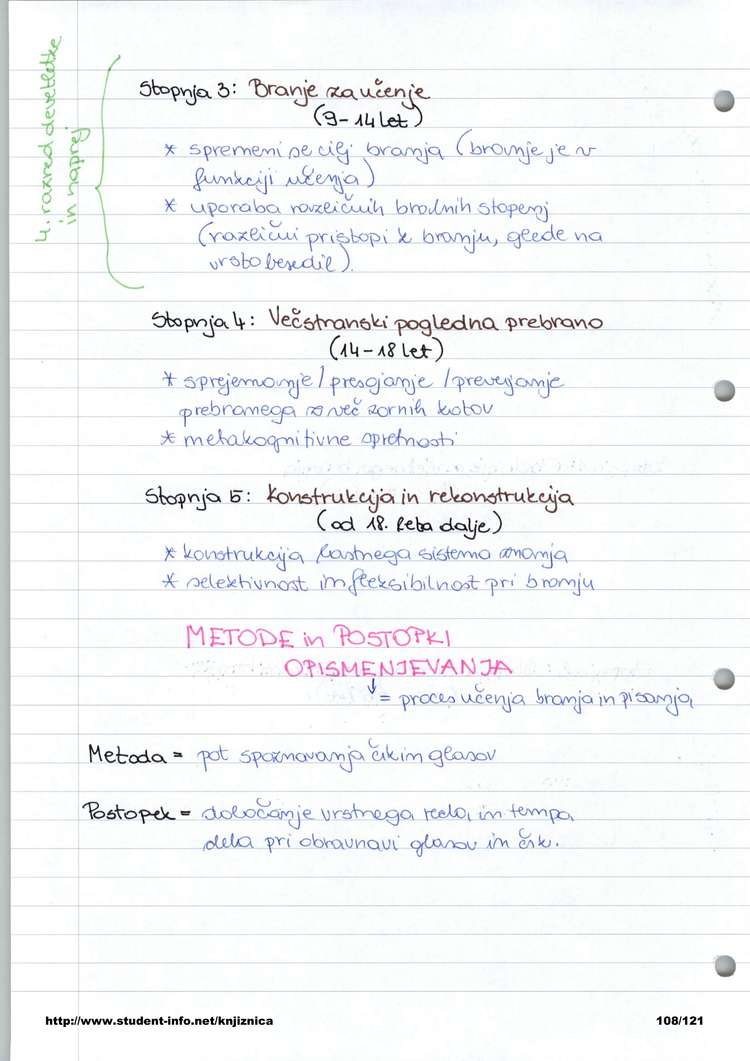 4. razred devetletke
in naprej
Stopnja 3: Branje za učenje
(9-14 let)
* spremeni se cilj branja (branje je v
funkciji učenja)
* uporaba različnih bralnih stopenj
(različni pristopi k branju, glede na
vrsto besedil).
Stopnja 4: Večstranski pogled na prebrano
(14-18 let)
* sprejemanje / presojanje / preverjanje
prebranega z več zornih kotov
* metakognitivne spretnosti
Stopnja 5: Konstrukcija in rekonstrukcija
(od 18. leta dalje)
* konstrukcija lastnega sistema znanja
* selektivnost in fleksibilnost pri branju
METODE in POSTOPKI
OPISMENJEVANJA
↓ = proces učenja branja in pisanja
Metoda = pot spoznavanja črk in glasov
Postopek = določanje vrstnega reda, in tempa
dela pri obravnavi glasov in črk.
http://www.student-info.net/knjiznica
108/121